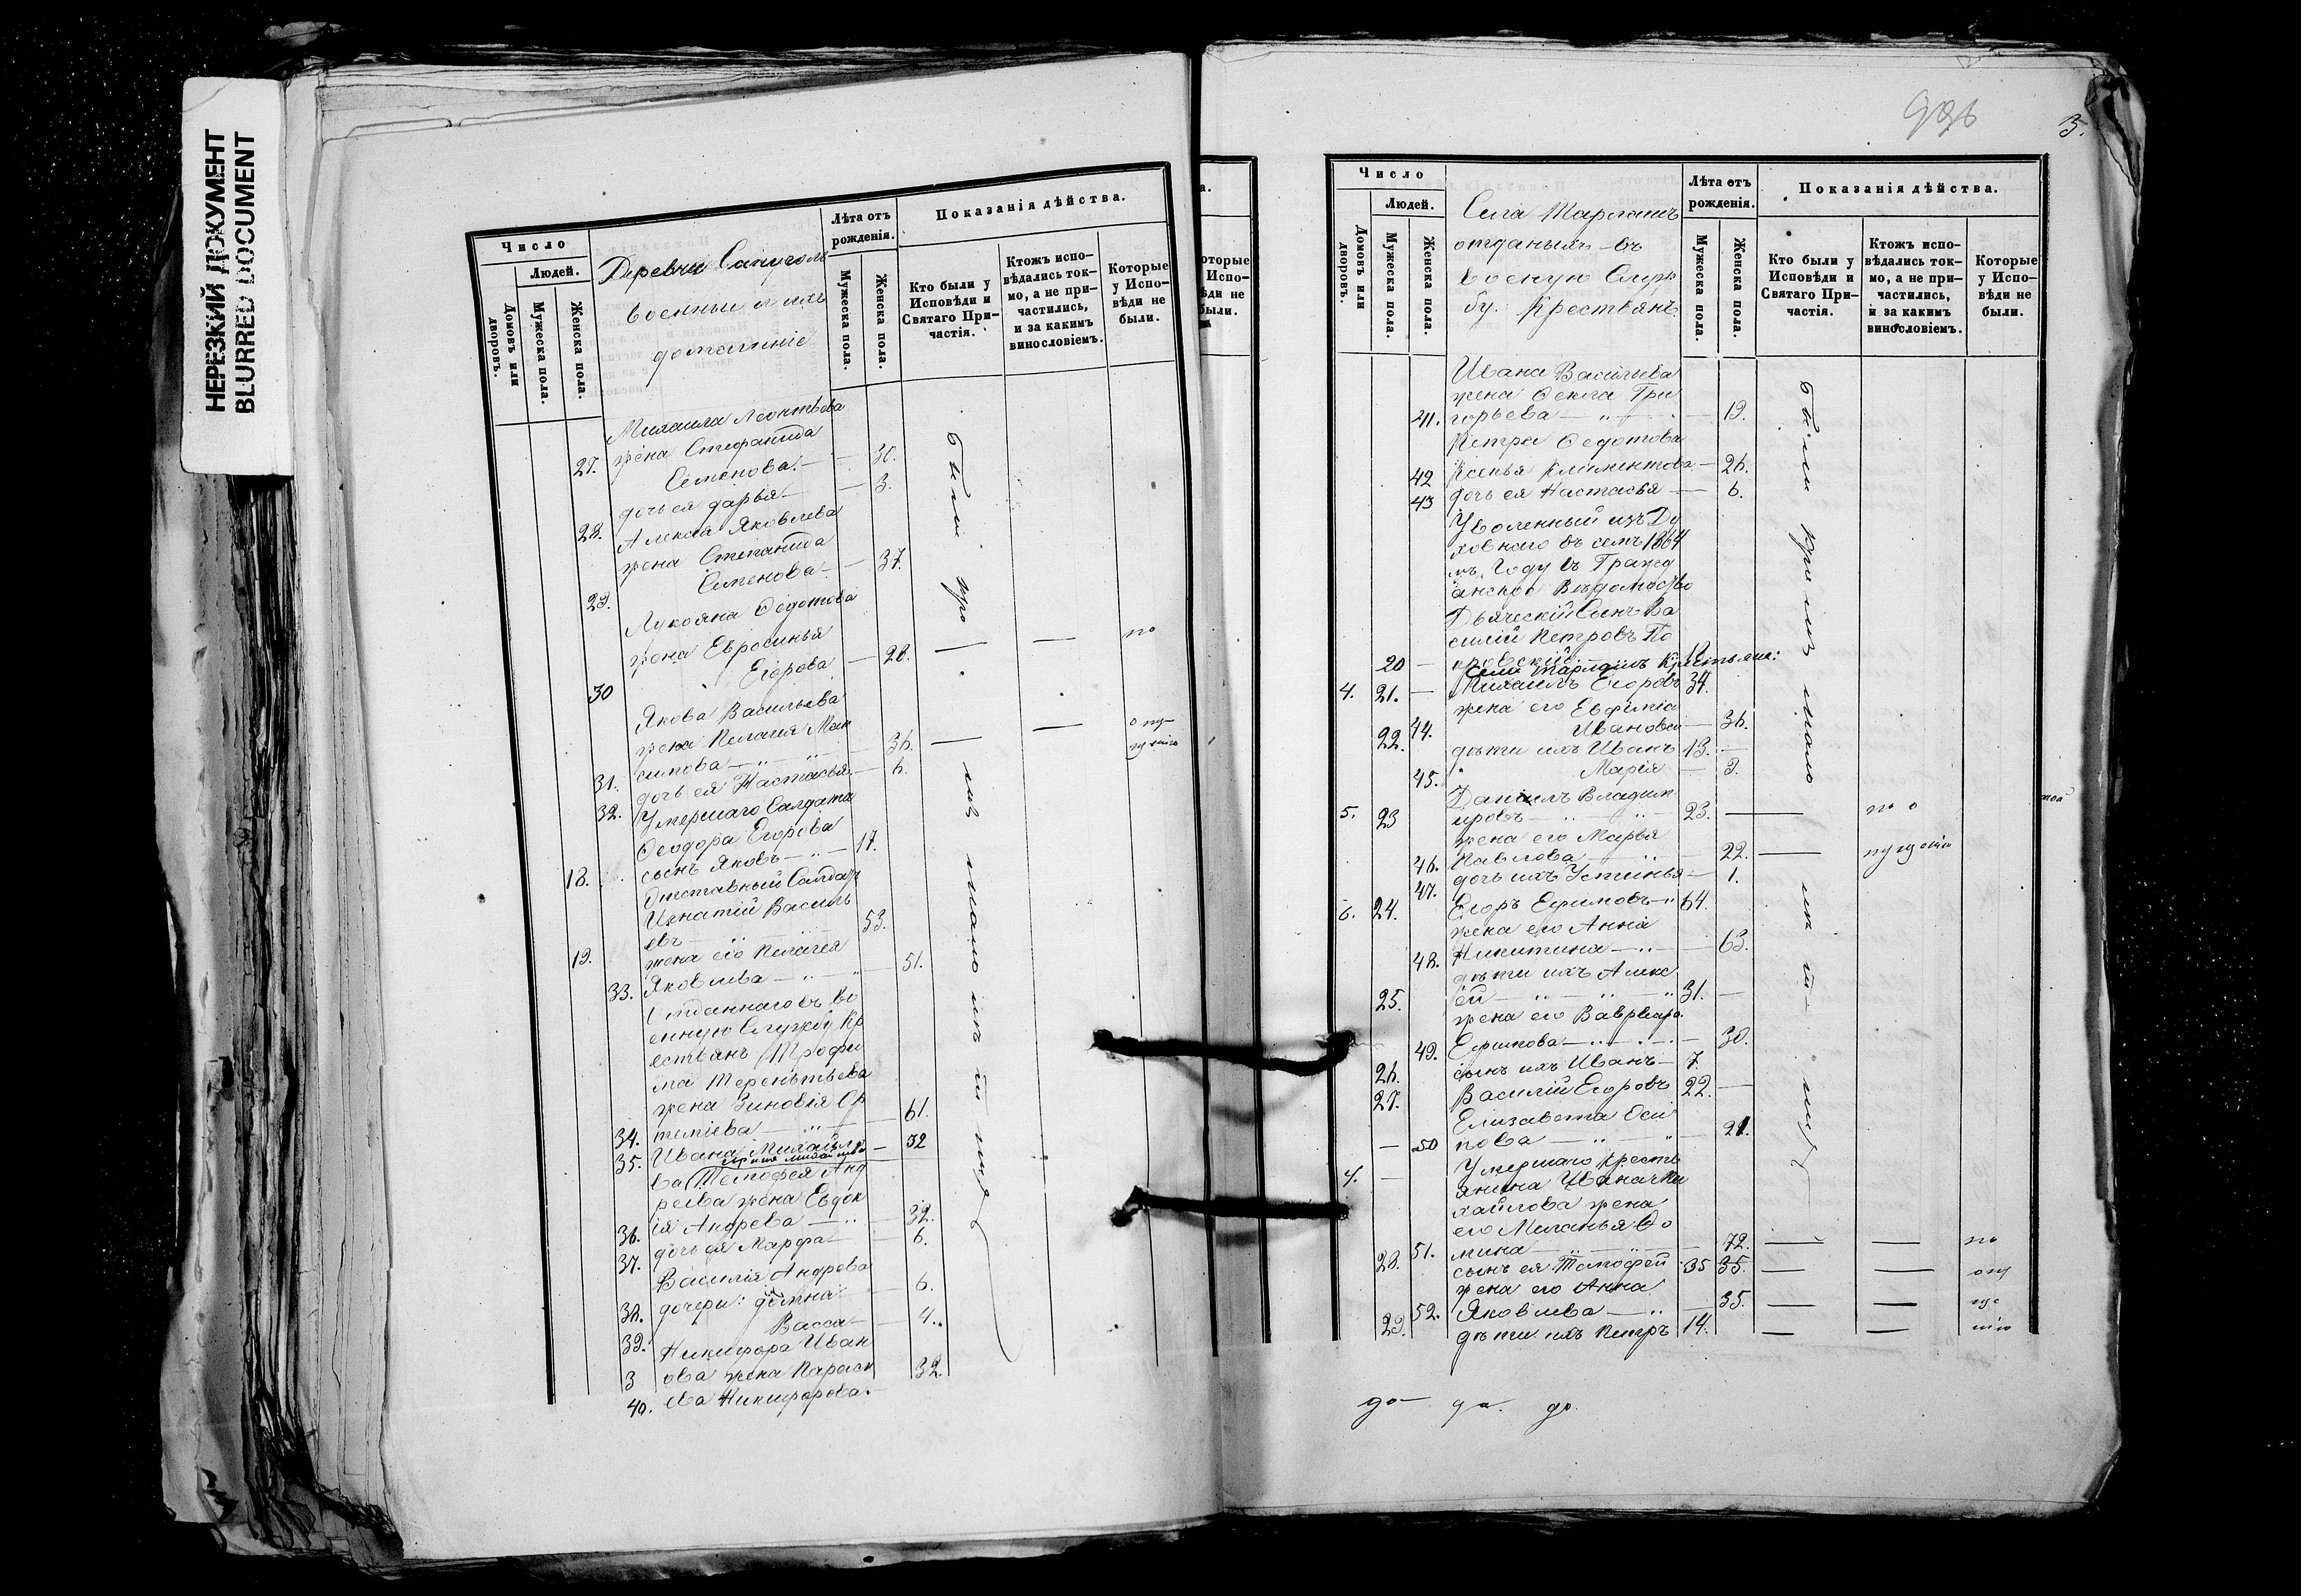 НЕРЕЗКИЙ ДОКУМЕНТ
BLURRED DOCUMENT
Число
Людей.
Домовъ или дворовъ.
Мужеска пола.
Женска пола.
Деревни
военныи и ихъ
домашніе
Лѣта отъ рожденія.
Мужеска пола.
Женска пола.
Показанія дѣйства.
Кто были у Исповѣди и Святаго Причастія.
Ктожъ исповѣдались токмо, а не причастились, и за какимъ винословіемъ.
Которые у Исповѣди не были.
Михаила Леонтьева
27. жена Стефанида
Семенова — 30.
28. дочь ея Дарья — 3.
Алексѣя Яковлева
жена Степанида
29. Семенова — 37.
Лукояна Ѳедотова
жена Евросинья
30 Егорова — 28. — — по
Якова Васильева
жена Пелагея Мак
31. симова — 36. — — опу
32. дочь ея Настасья — 6. щенію
Умершаго Салдата
Ѳеодора Егорова
18. сынъ Яковъ — 17.
Отставный Салдат
Игнатій Василь
19. евъ — 53.
жена его Пелагея
33. Яковлева — 51.
Отданнаго въ во
енную Службу Кр
естьянъ Трофи
ма Терентьева
жена Зиновія Ар
34. теміева — 61.
35. Ивана Михайло — 32
ва Тимофея Анд
реева жена Евдок
36. ія Андрева — 32.
37. дочь ея Марфа — 6.
Василія Андрева
38. дочери: Домна — 6.
39. Васса — 4.
Никифора Иван
3 ова жена Параск 32.
40. ева Никифорова.
были
996
3.
Число
Людей.
Домовъ или дворовъ.
Мужеска пола.
Женска пола.
Села
отданыхъ въ
военую Служ
бу. Крестьянъ.
Лѣта отъ рожденія.
Мужеска пола.
Женска пола.
Показанія дѣйства.
Кто были у Исповѣди и Святаго Причастія.
Ктожъ исповѣдались токмо, а не причастились, и за какимъ винословіемъ.
Которые у Исповѣди не были.
Ивана Васильева
жена Ѳекла Гри
41. горьева — 19.
Петра Ѳедотова
42 Ксенья Климентова — 26.
43 дочь ея Настасья — 6.
Уволенный изъ Ду
ховнаго въ семъ 1864
мъ Году въ Гражд
анское Вѣдомство
Дьяческій Сынъ Ва
силій Петровъ По
20 — кровскій
Крестьяне:
4. 21. — Михаилъ Егоровъ 37.
жена его Евфимія
44. Иванова — 36.
22. дѣти ихъ Иванъ 13. —
45. Марія — 9.
Даніилъ Владим
5. 23 ировъ — 23. — по о
жена его Марья
46. Павлова — 22. — пущенію
47. дочь ихъ Устинья — 1.
6. 24. Егоръ Ефимовъ 64.
жена его Анна
48. Никитина — 63.
дѣти ихъ Алекс
25. ѣй — 31. —
жена его Варвара
49. Ефимова — 30.
26. сынъ ихъ Иванъ — 7.
27. Василій Егоровъ 22. —
Елизавета Оси
— 50 пова — 21.
Умершаго Кресть
7. — янина Ивана Ми
хайлова жена
его Меланья Ѳо
51. мина — 72. — — по
28. сынъ ея Тимофей 35 35. — — опу
жена его Анна
52. Яковлева — 35. — — ще
29. дѣти ихъ Петръ 14. — — нію
были